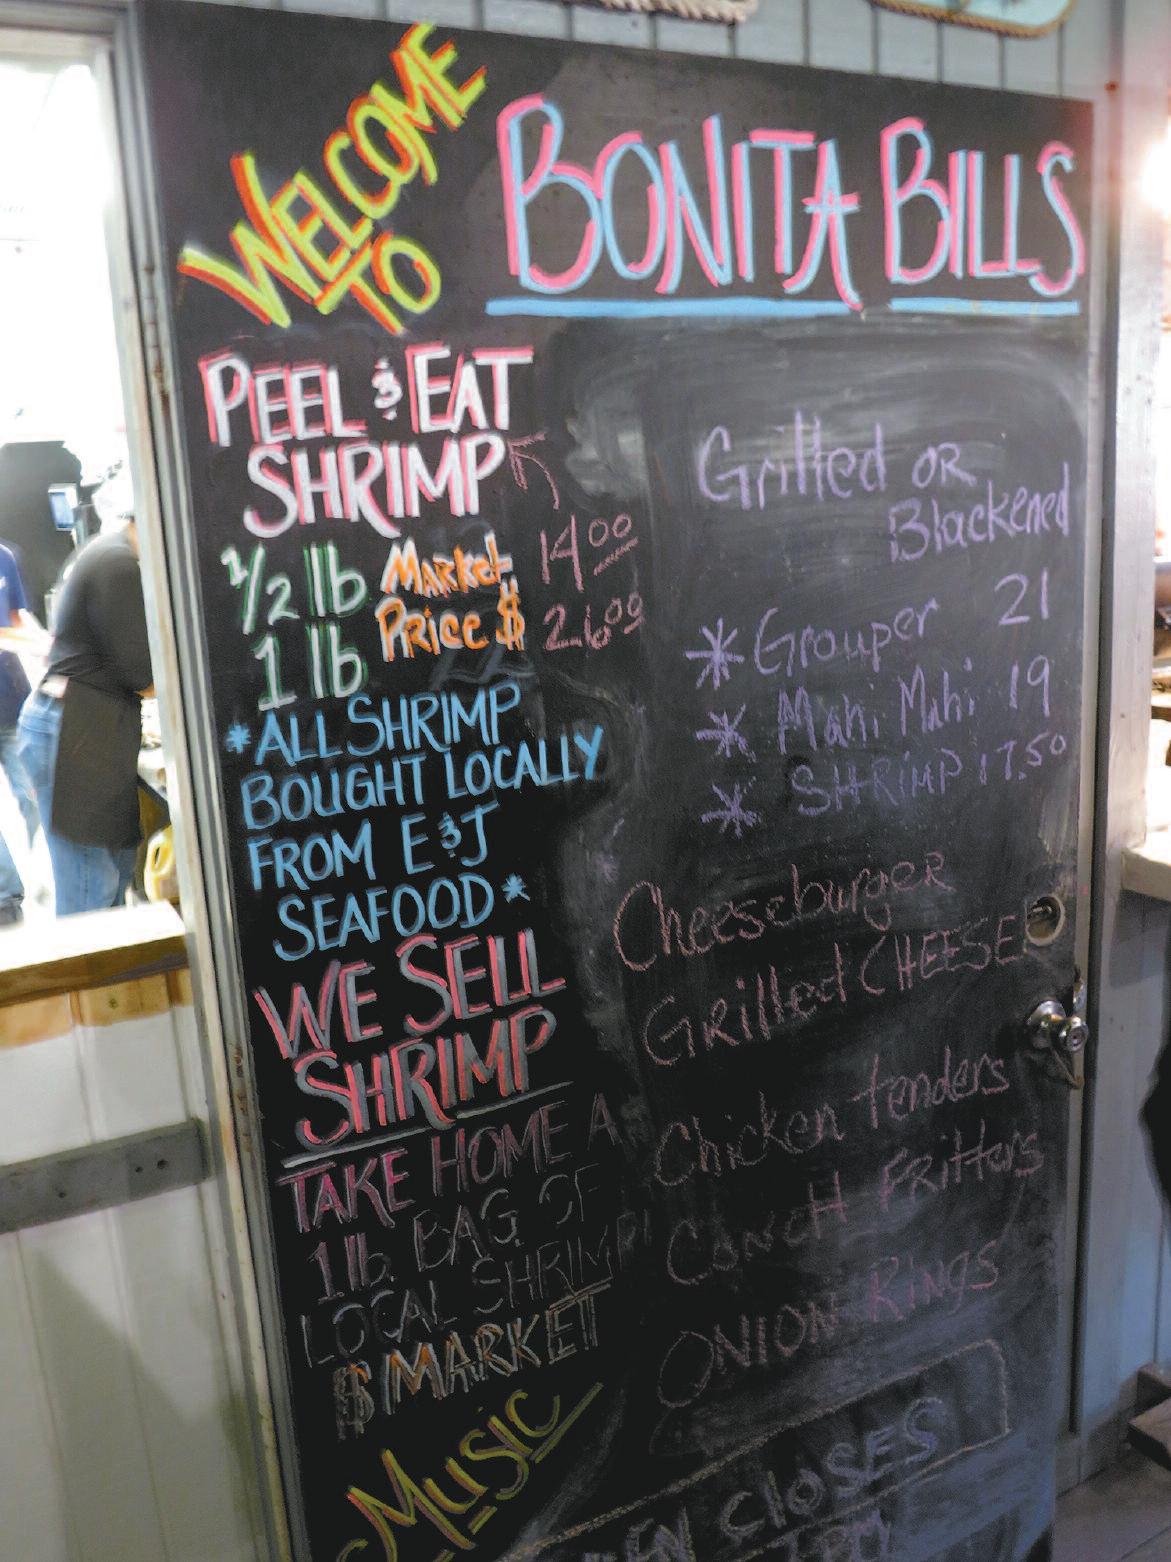 WELCOME
TO
BONITA BILLS
PEEL & EAT
SHRIMP
1/2 lb Market 14.00
1 lb Price $ 26.00
*ALL SHRIMP
BOUGHT LOCALLY
FROM E & J
SEAFOOD*
WE SELL
SHRIMP
TAKE HOME A
1 lb. BAG OF
LOCAL SHRIMP!
$ MARKET
MUSIC
Grilled OR
Blackened
* Grouper 21
* Mahi Mahi 19
* SHRIMP 17.50
CheeseburgeR
GRilled CHEESE
Chicken tenders
CONCH FRitters
ONION RINGS
CLOSES